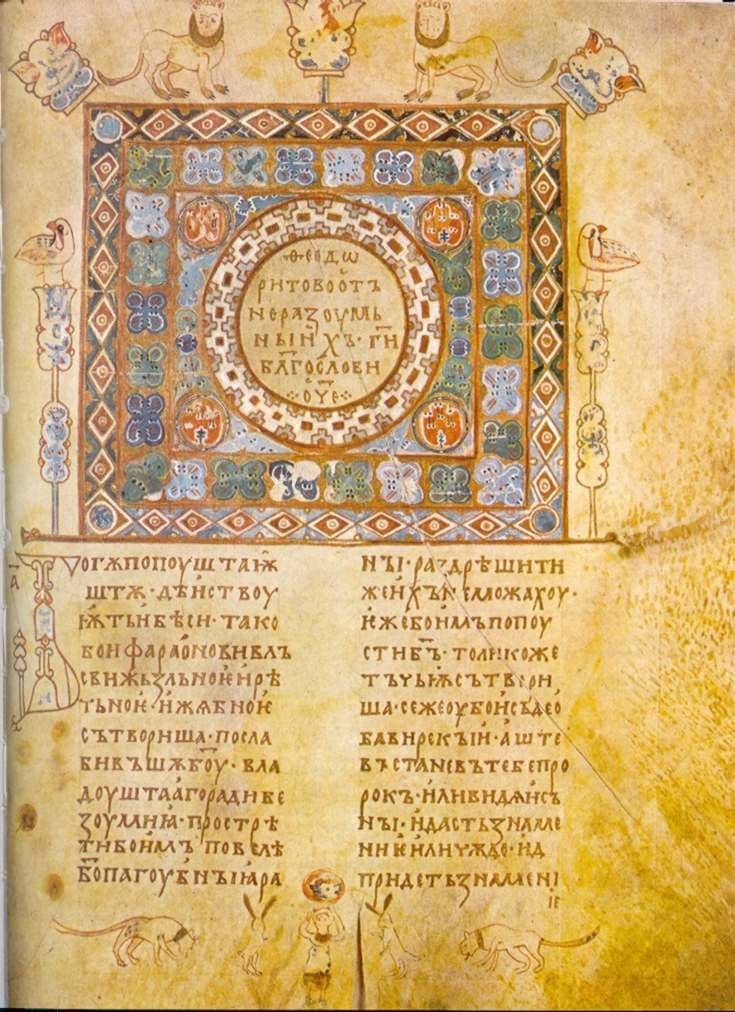 ѳеодѡ
ритово ѿтъ
неразоумь
ныихъ · г҃и
бл҃агослови
о҃че
Б҃ога попоушта ѭ
шта · дѣиство у
ѭтъ и бѣси · тако
бо и фараонови влъ
сви жьзльноѥ и рѣ
чьноѥ · и жѧбьноѥ
сътвориша · посла
бивъшѫ б҃оу · вла
доуштаего ради бе
зоумиꙗ · прострѣ
ти бо имъ повелѣ
б҃ъ пагоубныꙗ ра
ны · раздрѣшити
же ихъ не можахоу ·
иже бо имъ попоу
сти б҃ъ · толико же
тъчьѭ сътвори
ша · се же оубо и съде о
бавирекыи · аште
въстанеть въ тебе про
рокъ · или видѧи съ
ны · и дасть знаме
ниѥ или чюждо · и
придеть знамениѥ